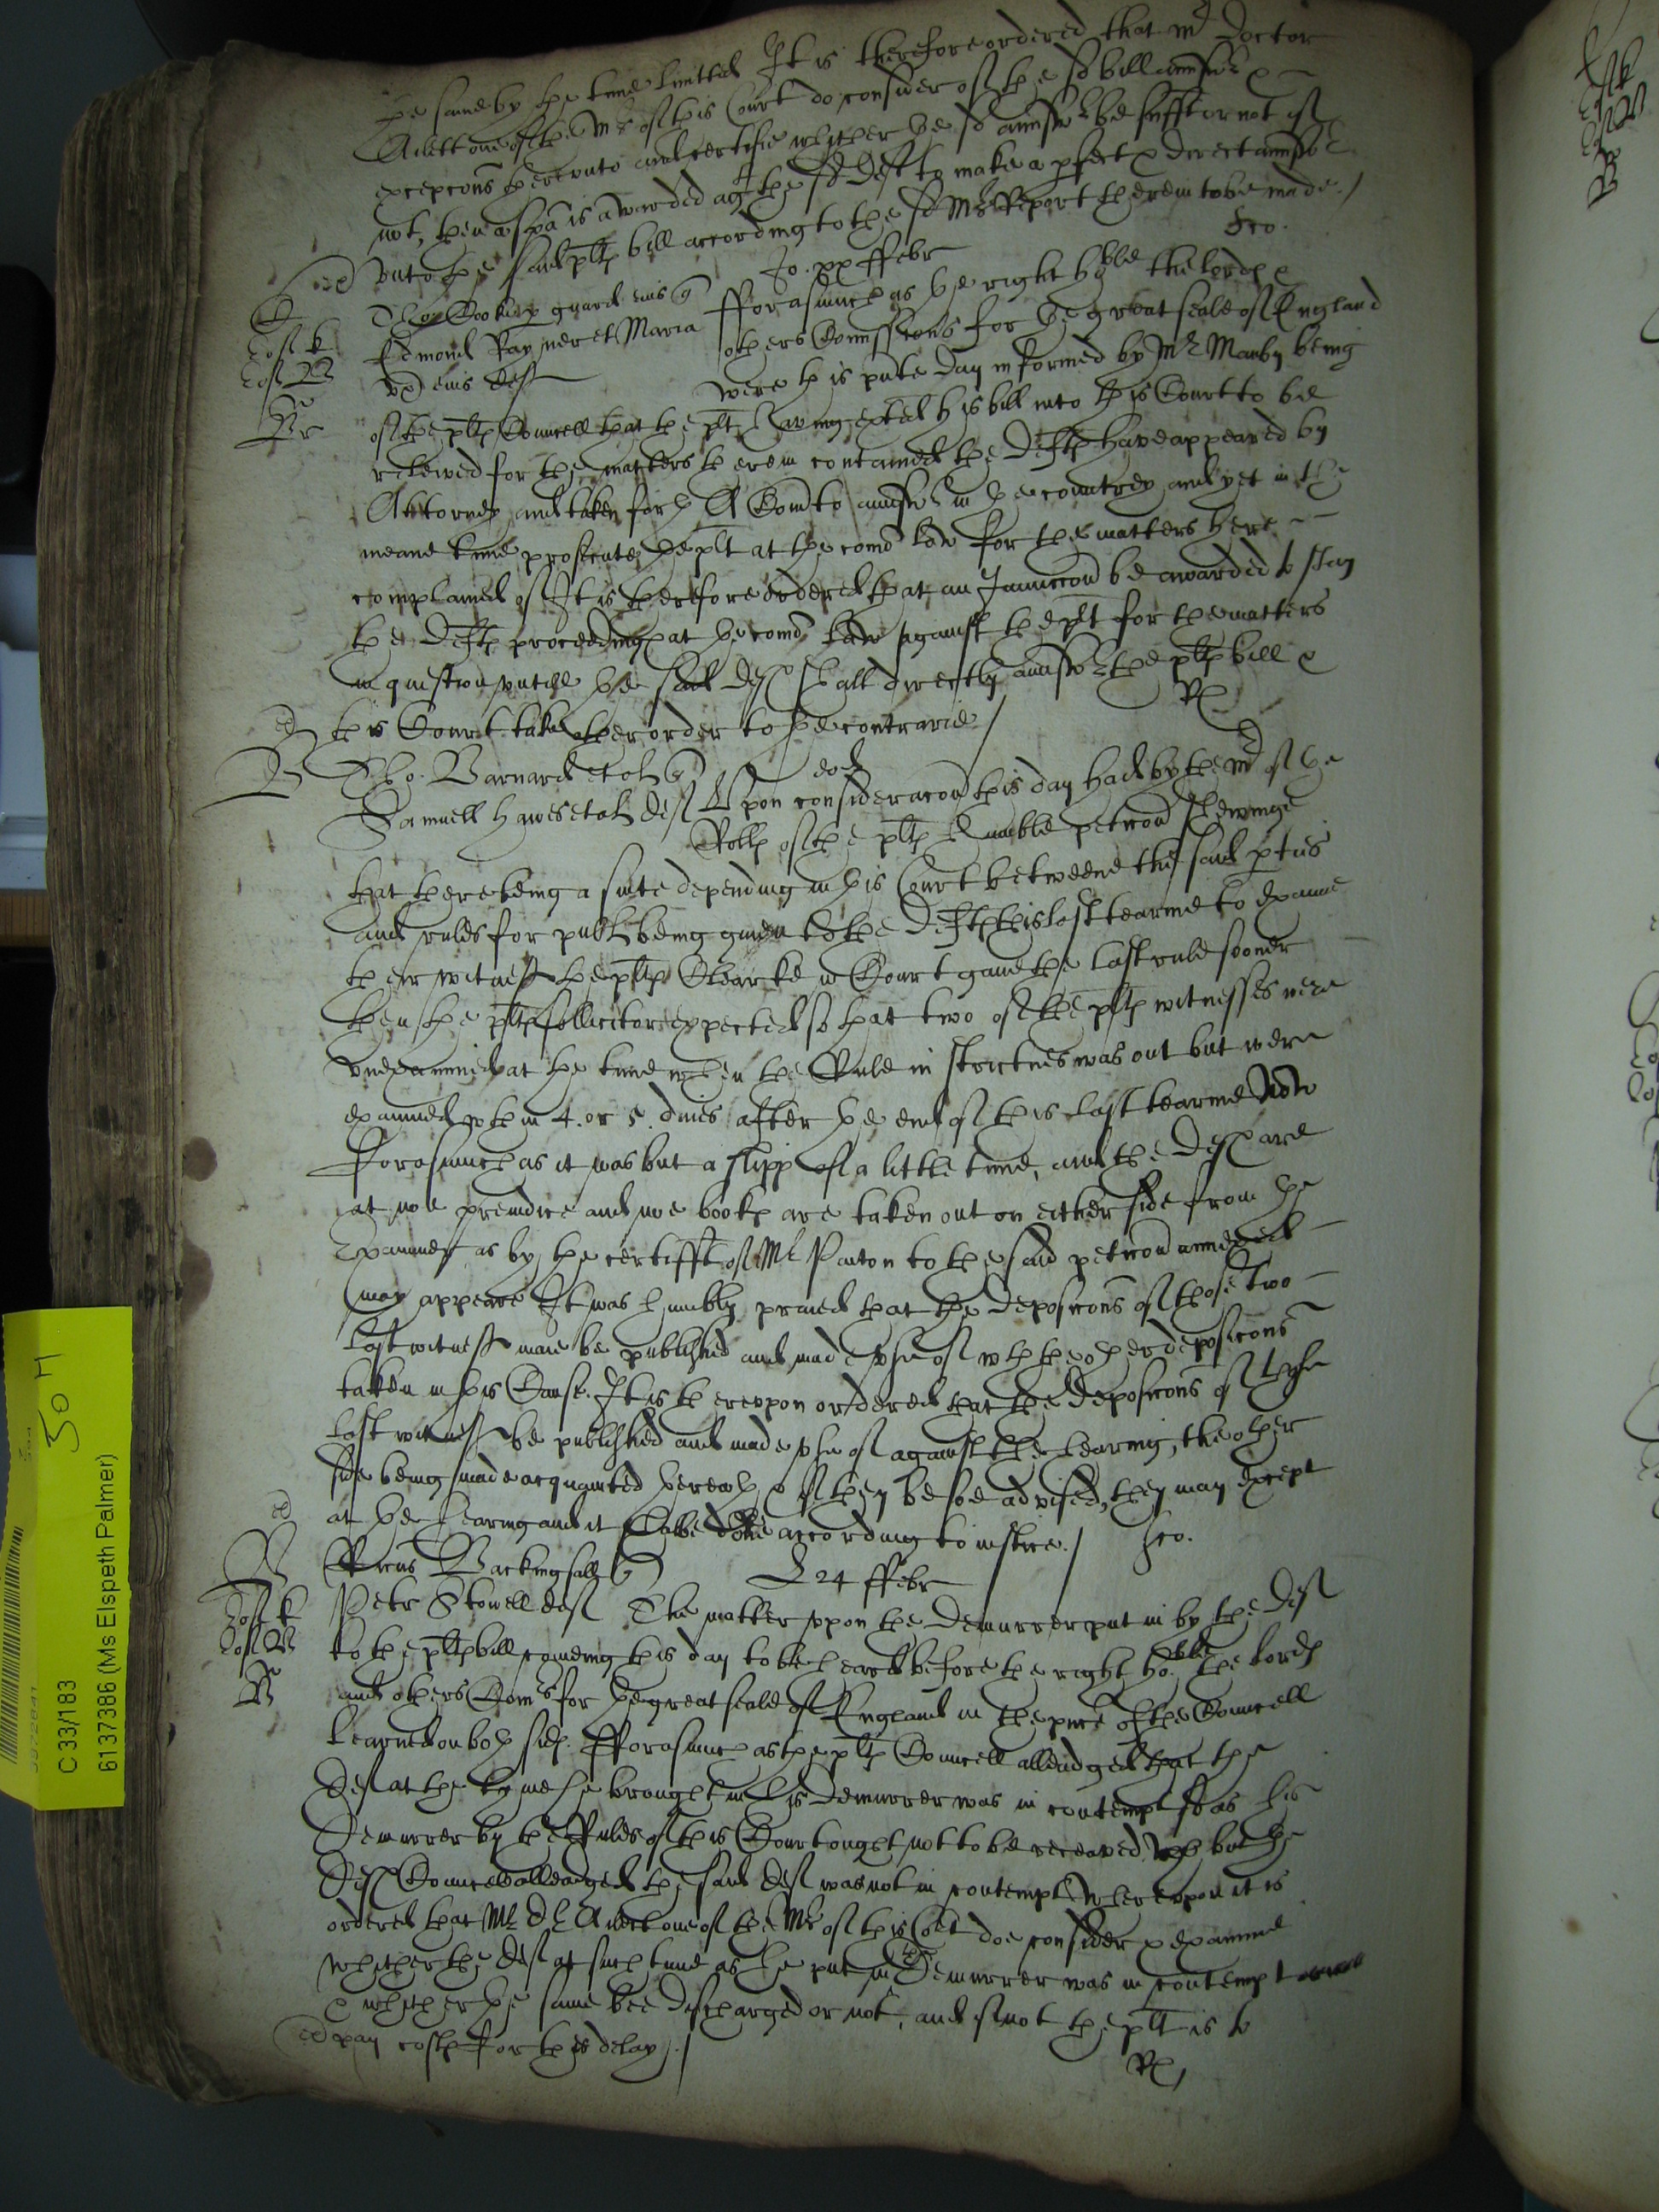 the same by the time limited It is therefore ordered that mr Doctor
Aylett one of the Mrs of this Court do consider of the sd bill answr &
excepcons thereunto and certifie whether the sd answr be sufft or not if
not, then a spa is awarded agt the sd deft to make a pfect & direct answr
unto the said plts bill according to the sd Mrs Report therein to be made./
Jo. xx ffebr
Tho Cooke p guard eius q
Edmond Raynere et Maria
ux eius deft
fforasmuch as the right hoble the lords &
others Comissioners for the great seale of England
were this pnte day informed by Mr Manby being
of the plts Councell that the plt having exhited his bill into this Court to be
releived for the matters therein contained the defts have appeared by
Attorney and taken forth A Comn to answr in the countrey and yet in the
meane time prosecute the plt at the comon law for the matters here
complained of It is therefore ordered that an Iniunccon be awarded to stay
the defts proceedings at the comon law against the plt for the matters
in question untill the said defts shall directly answr the plts bill &
this Court take other order to the contrarie /
Rl
Tho. Barnard et al q
Samuell Hawes et al def
eod
Upon consideracon this day had by the mr of the
Rolls of the plts humble peticon shewinge
that there being a suite depending in this Court betweene the said pties
and rules for publ being given to the defts this last tearme to examine
their witness the plts Clearke in Court gave the last rule sooner
then the plts sollicitor expected so that two of the plts witnesses were
unexamined at the time when the Rule in strictnes was out but were
examined wthin 4. or 5. daies after the end of this last tearme Now
forasmuch as it was but a slipp of a little time, and the defts are
at noe preiudice and noe books are taken out on either side from the
Examiner as by the certifft of Mr Paiton to the said peticon annexed
may appeare It was humbly praied that the deposicons of those two
last witness maie be published and made use of wth the other deposicons
taken in this Cause. It is thereupon ordered that the deposicons of those
last witness be published and made use of against the hearing, the other
side being made acquainted therewth & if they be soe advised, they may except
at the hearing and it shalbe done according to iustice./
ffrans Backingsall q
Petr Stowell def
D 24 ffebr
The matter upon the demurrer put in by the def
to the plts bill comeing this day to be heard before the right hoble the lords
and others Comrs for the great seale of England in the pnce of the Councell
learned on both sids. fforasmuch as the plts Councell alleadged that the
def at the tyme he brought in his demurrer was in contempt so as his
demurrer by the Rules of this Court ought not to be received but the
defts Councell alleadged the said def was not in contempt Whereupon it is
ordered that Mr dr Aylett one of the Mrs of this Cort doe consider & examine
whether the def at such time as he put in his demurrer was in contempt
& whether the same bee discharged or not, and if not the plt is to
pay costs for this delay./
Rl
C 33/183
6137386 (Ms Elspeth Palmer)